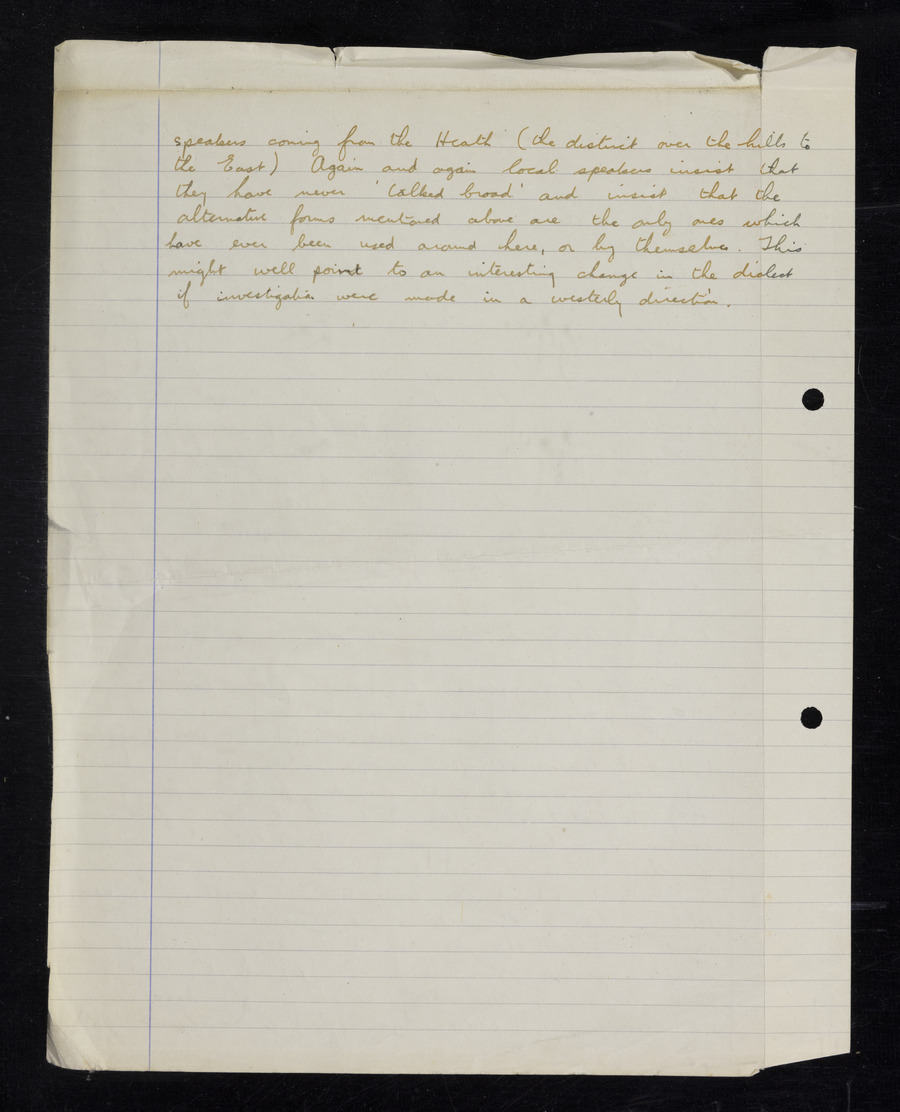 speakers coming from the Heath (the district over the hills to
the East) Again and again local speakers insist that
they have never 'talked broad' and insist that the
alternative forms mentioned above are the only ones which
have ever been used around here, or by themselves. This
might well point to an interesting change in the dialect
if investigation were made in a westerly direction.